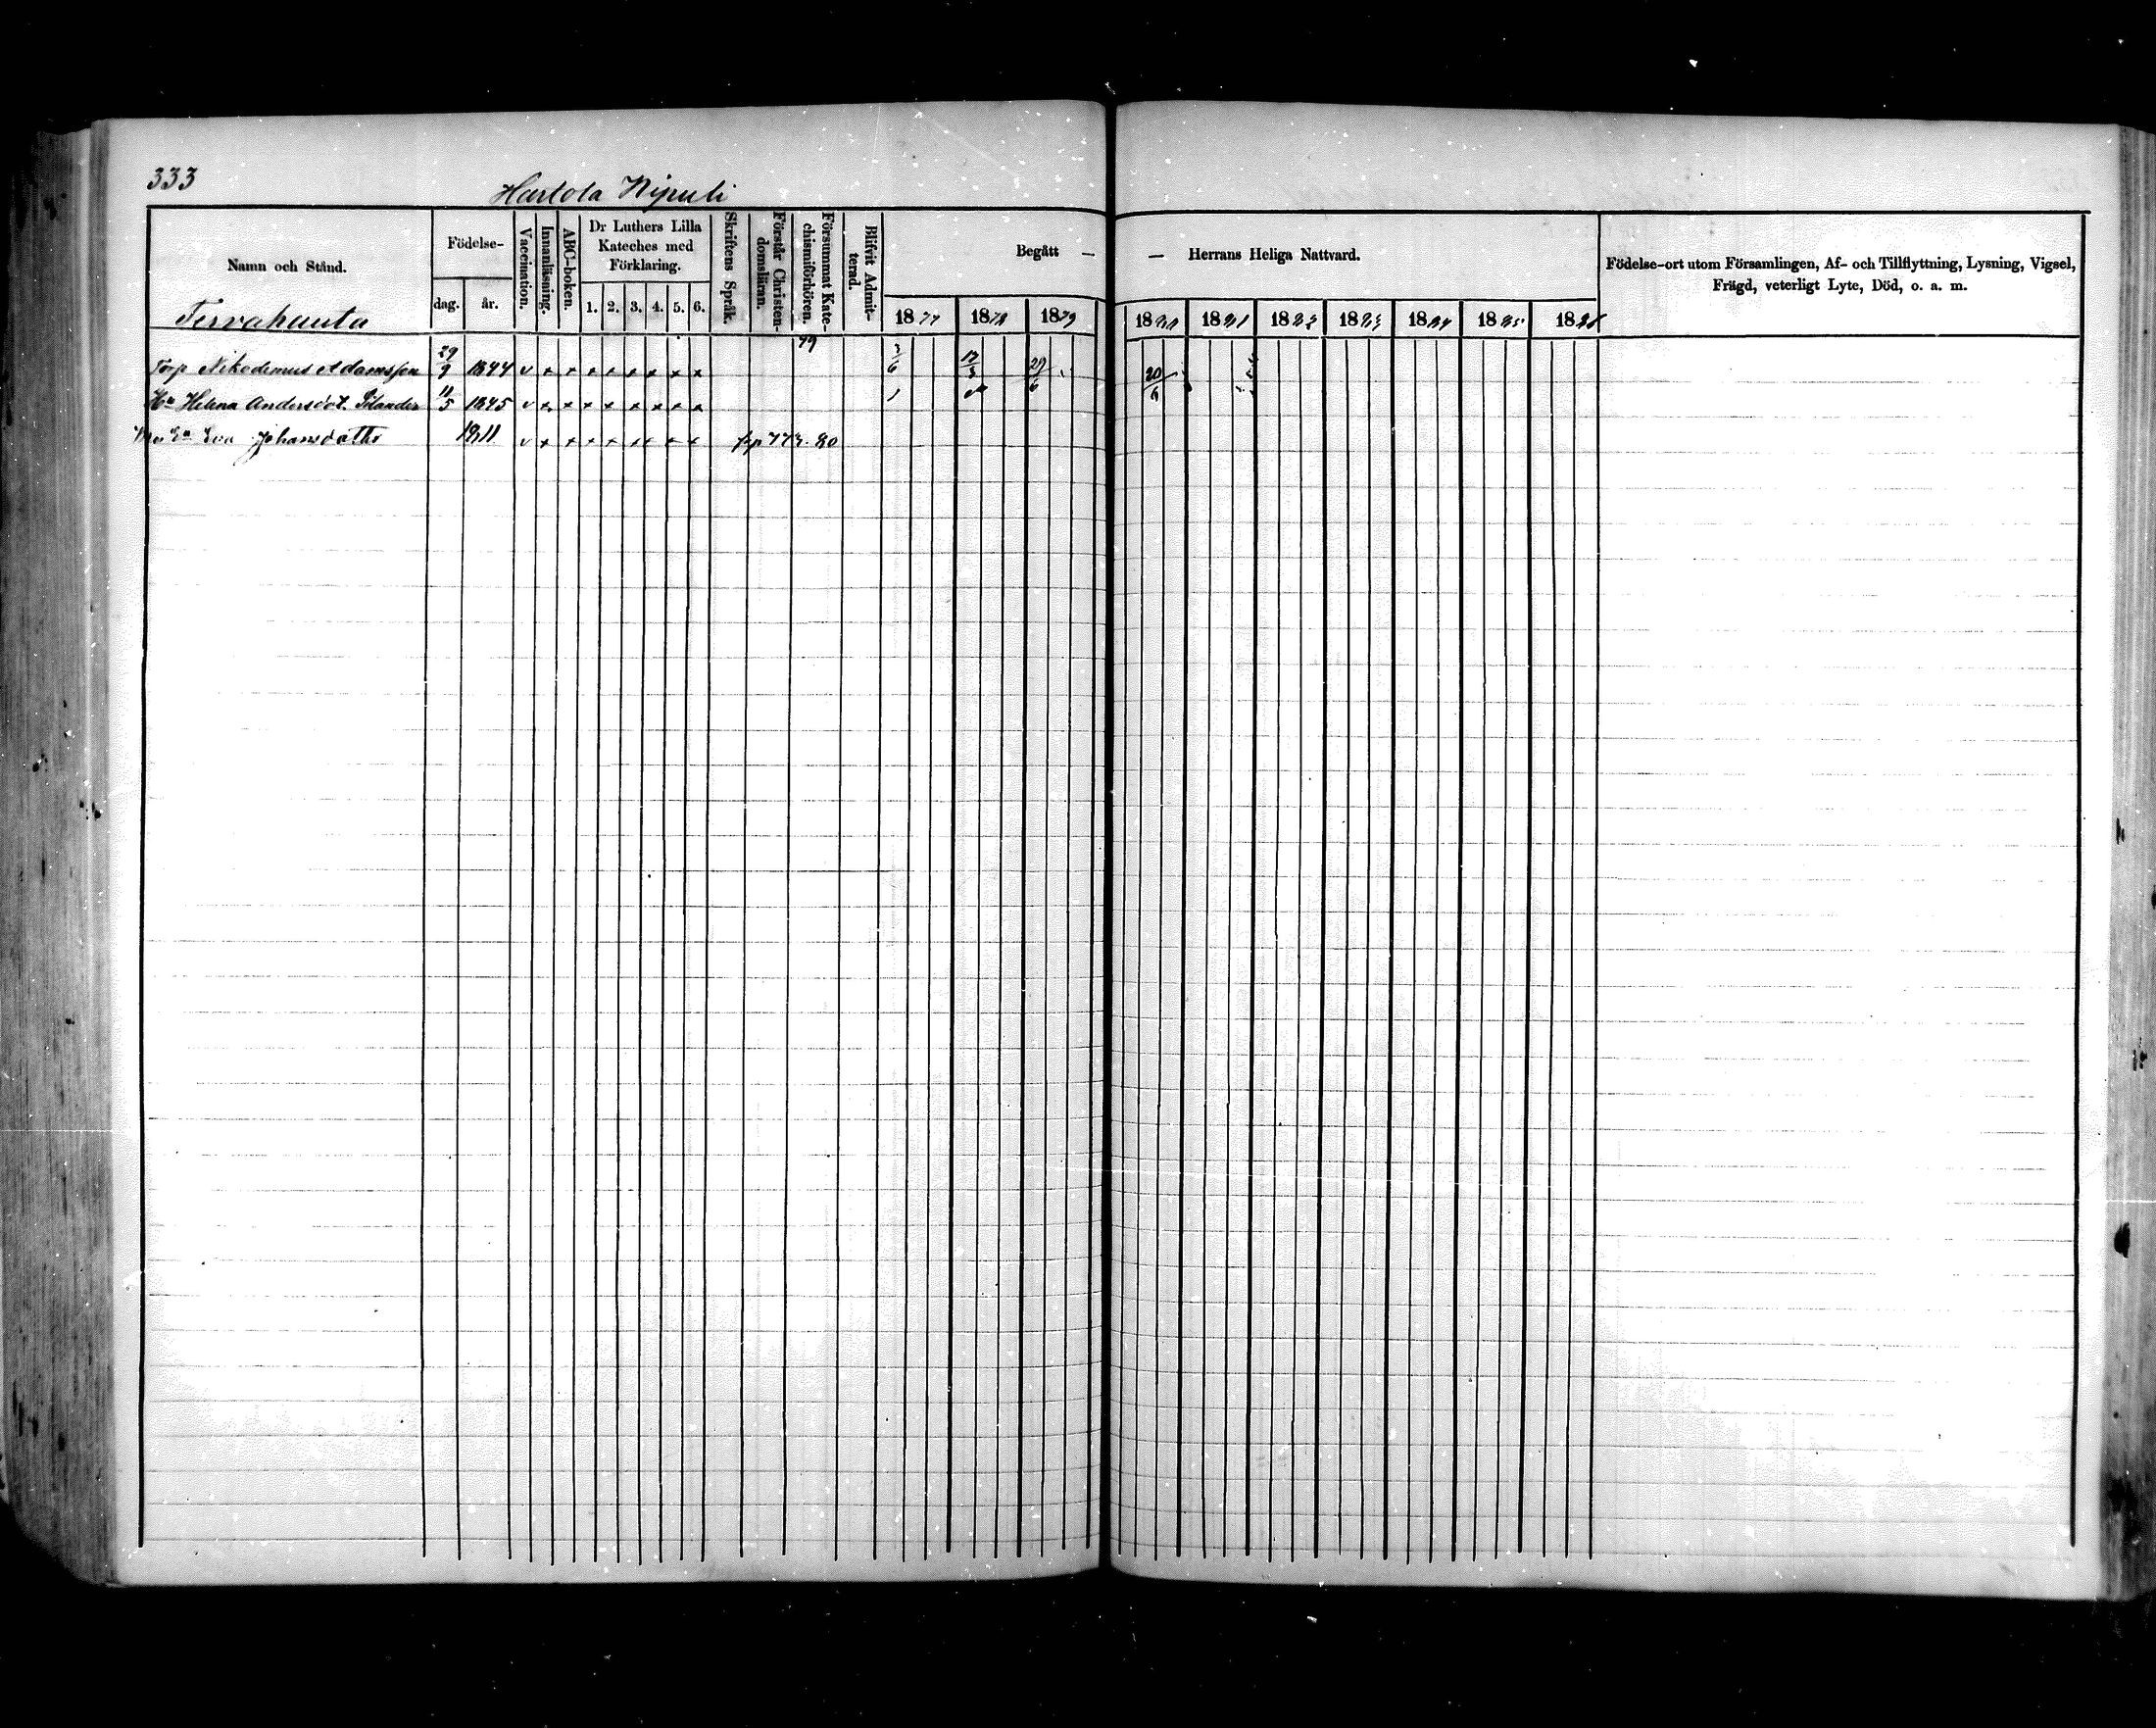 333
Hartola Nipuli
Namn och Stånd.
Födelse-
dag. år.
Vaccination.
Innanläsning.
ABC-boken.
Dr Luthers Lilla
Kateches med
Förklaring.
1. 2. 3. 4. 5. 6.
Skriftens Språk.
Förstår Christen-
domsläran.
Försummat Kate-
chismiförhören.
Blifvit Admit-
terad.
Begått —
1877 1878 1879
— Herrans Heliga Nattvard.
1880 1881 1882 1883 1884 1885 1886
Födelse-ort utom Församlingen, Af- och Tillflyttning, Lysning, Vigsel,
Frägd, veterligt Lyte, Död, o. a. m.
Tervahauta
Torp Nikodemus Adamsson 29/9 1844 v x x x x x x x x 79 3/6 29/6 20/6
Hu Helena Andersdot. 11/5 1845 v x x x x x x x x
Eva Johansdotter 1811 v x x x x x x x x 773. 80